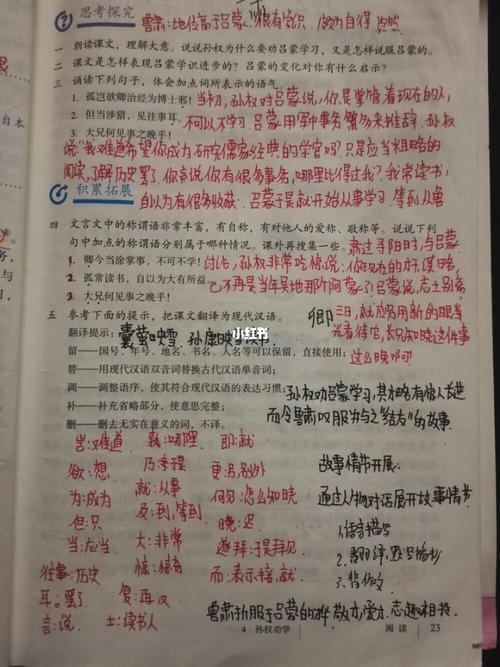 思考探究
鲁肃:地位高于吕蒙 很有学识
一 朗读课文,理解大意。说说孙权为什么要劝吕蒙学习,又是怎样说服吕蒙的。
二 课文是怎样表现吕蒙学识进步的?吕蒙的变化对你有什么启示?
三 诵读下列句子,体会加点词所表示的语气。
1. 孤岂欲卿治经为博士邪!
当初,孙权对吕蒙说,你是掌管着现在的人,
2. 但当涉猎,见往事耳。
不可以不学习 吕蒙用军中事务繁多来推辞,孙权
3. 大兄何见事之晚乎!
说"我难道希望你成为研究儒家经典的学官吗?只是应当粗略的
阅读,了解历史罢了你言说你有很多事务,哪里比得过我?我常读书,
自以为有很多收获 吕蒙于是就开始从事学习 等到
积累拓展
四 文言文中的称谓语非常丰富,有自称,有对他人的爱称、敬称等。说说下列
句中加点的称谓语分别属于哪种情况。课外再搜集一些。
肃过寻阳时,与吕蒙
1. 卿今当涂掌事,不可不学!
讨论,孙权非常吃惊说:你现在的才谋略,
2. 孤常读书,自以为大有所益。
已不再是当年吴地那个阿蒙了吕蒙说,志士别离
3. 大兄何见事之晚乎!
卿
三日,就应用新的眼
光看待它,长兄知晓这件事
这么晚啊
五 参考下面的提示,把课文翻译为现代汉语。
翻译提示:
囊萤映雪 孙康映雪
小红书
留——国号、年号、地名、书名、人名等可以保留,直接使用;
替——用现代汉语双音词替换古代汉语单音词;
调——调整语序,使其符合现代汉语的表达习惯;
补——补充省略部分,使意思完整;
删——删去无实在意义的词,不译。
孙权劝吕蒙学习,其才略有惊人长进
而令鲁肃叹服并与之"结友"的故事
岂:难道 孰:哪里 即:就
欲:想 乃:于是 更:另,别外
为:成为 就:从事 何见:怎么知晓
但:只 及:到,等到 晚:迟
当:应当 大:非常 遂拜:于是拜见
往事:历史 惊:惊奇 而:表示承接,就
耳:罢了 复:再又
言:说 士:读书人
故事情节开展:
通过人物对话展开故事情节
1.语言描写
3.背诵
鲁肃折服于吕蒙的才略
4 孙权劝学 阅读 23